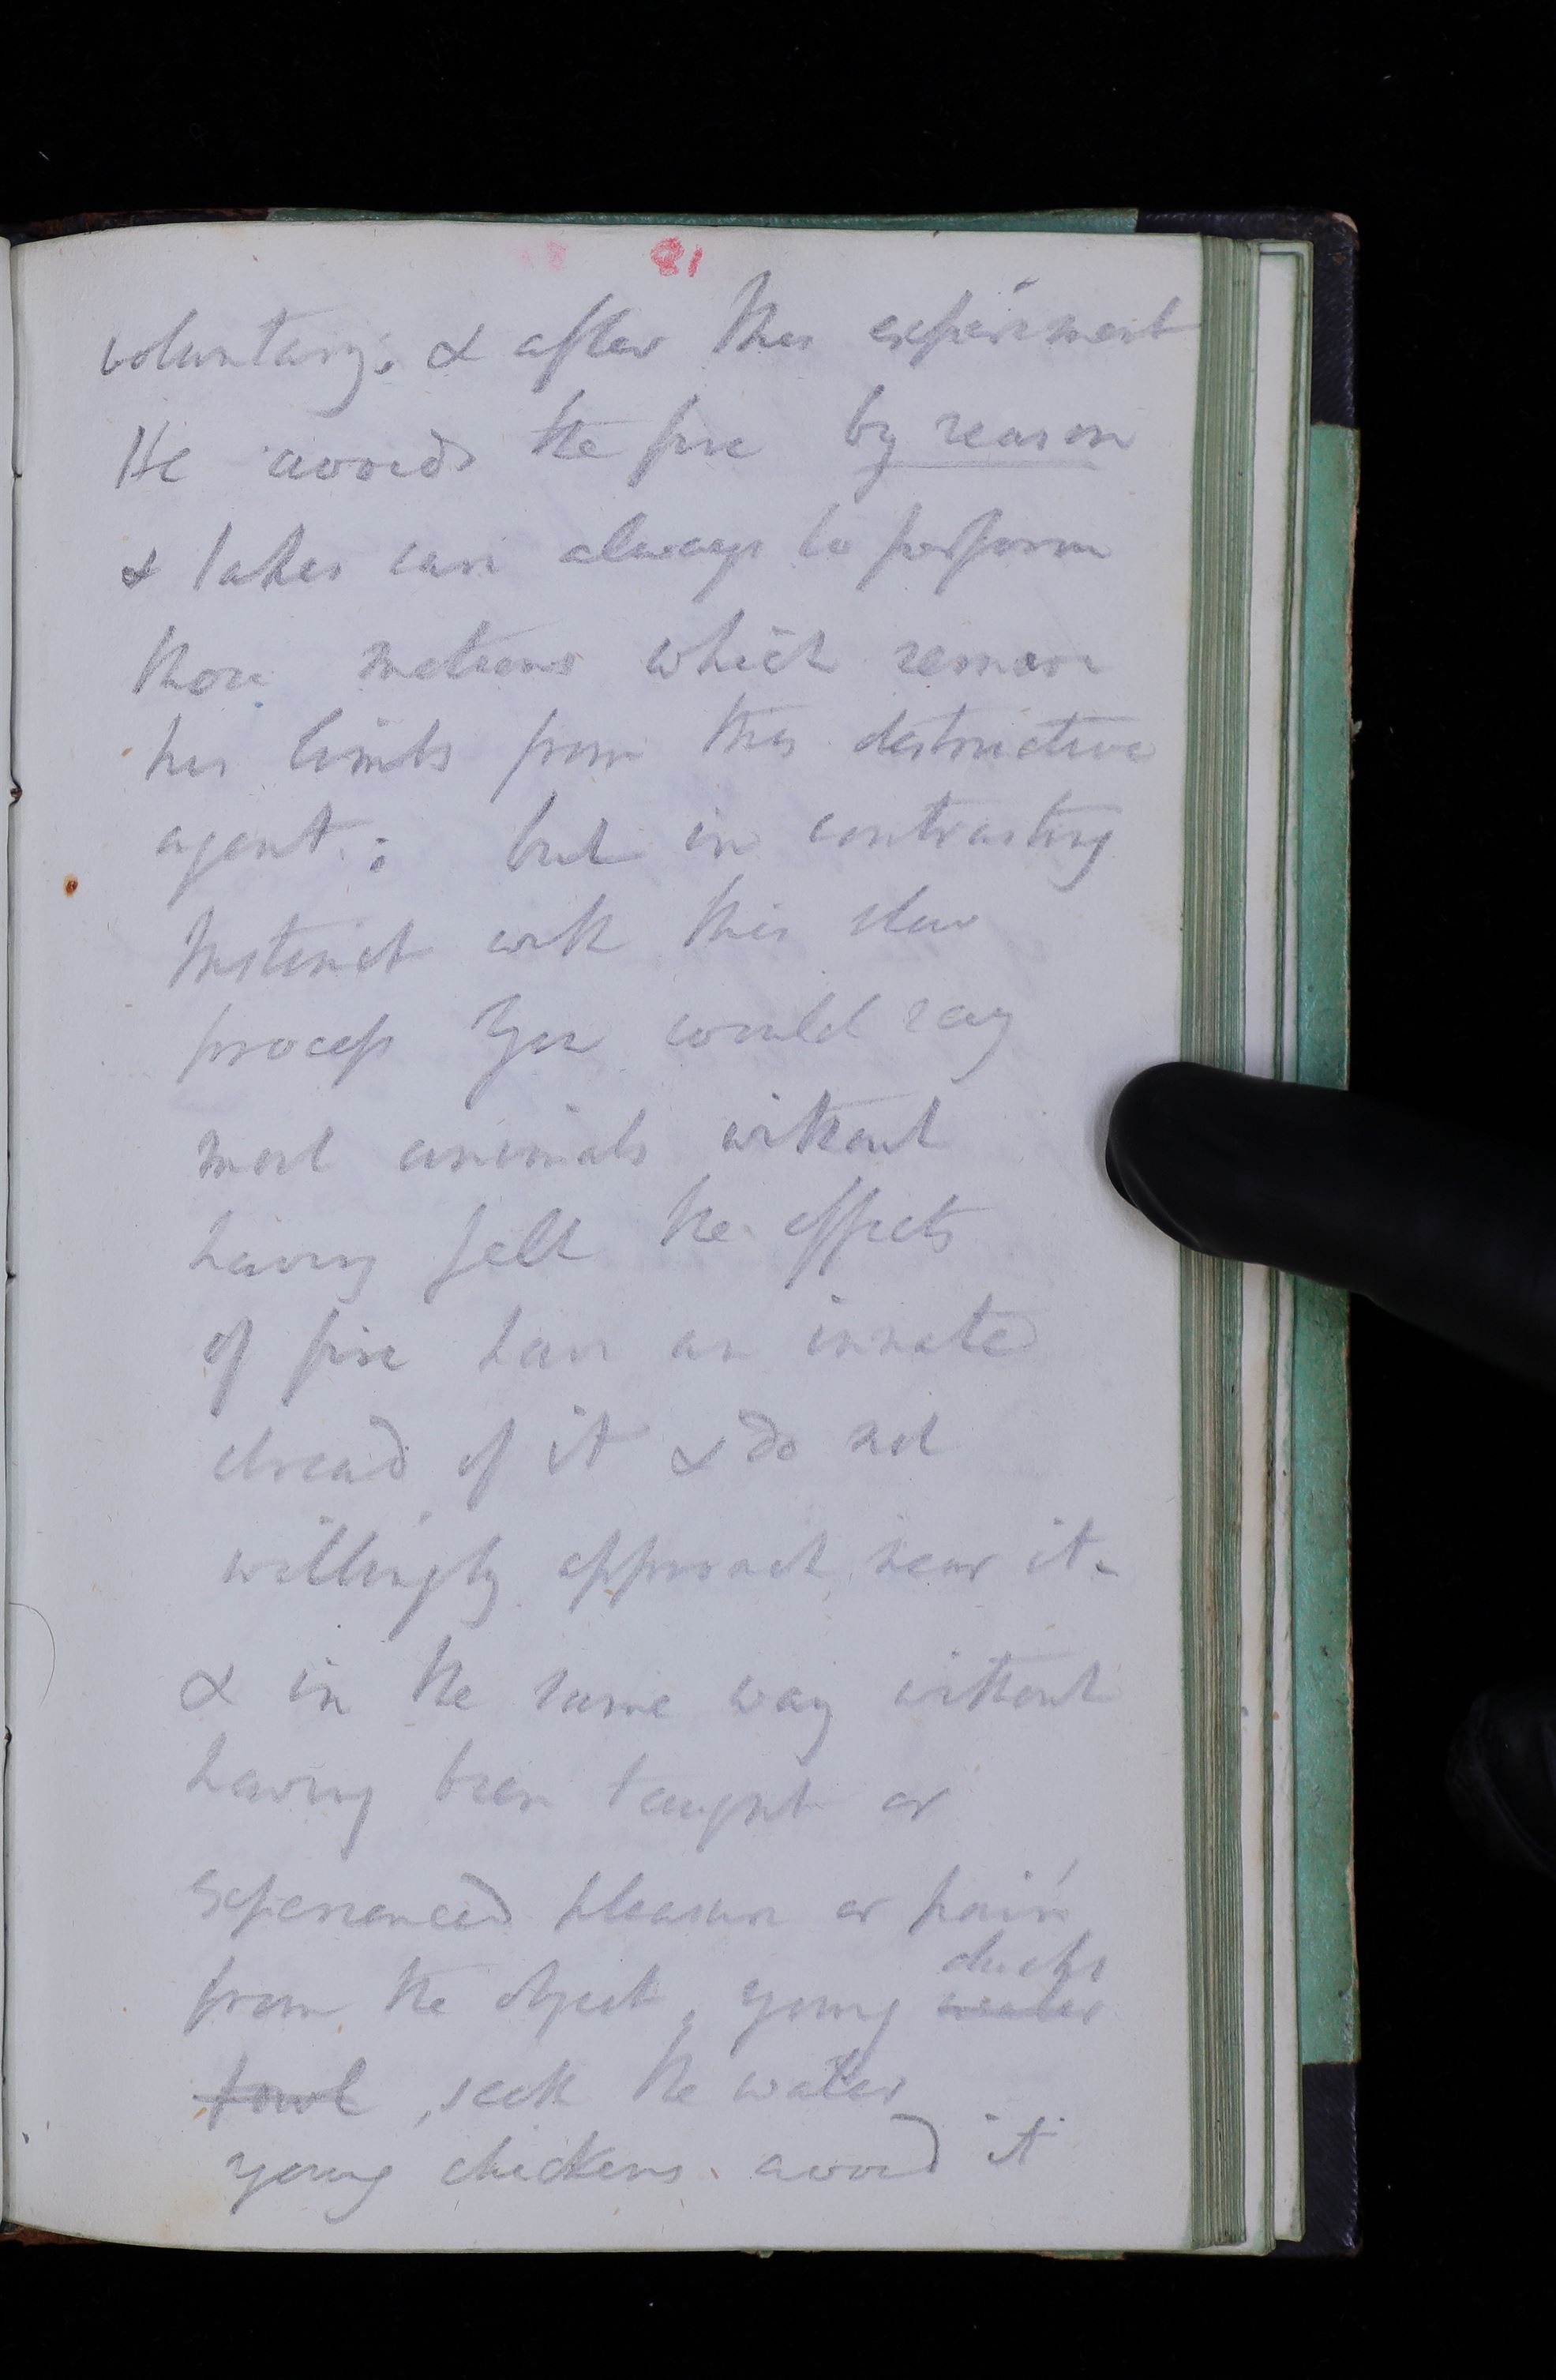 21
voluntary; & after this experiment
He avoids the fire by reason
& takes care always to perform
those motions which remove
his limbs from this destructive
agent: but in contrasting
Instinct with this slow
process You would say
most animals without
having felt the effects
of fire have an innate
dread of it & do not
willingly approach near it.
& in the same way without
having been taught or
experienced pleasure or pain
ducks
from the object, young water
fowl, seek the water
young chickens avoid it